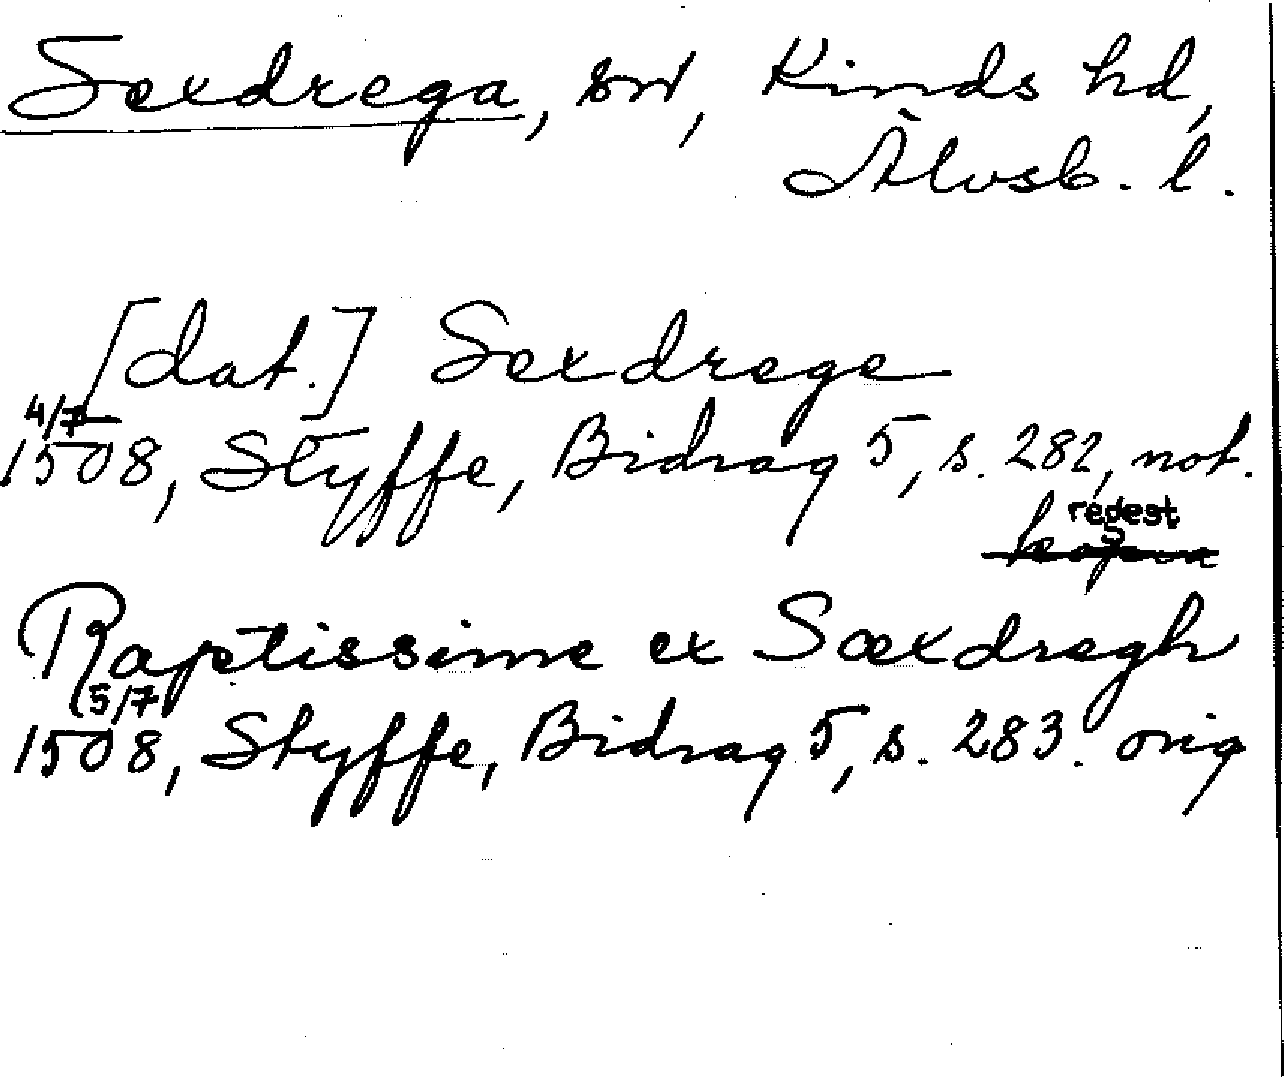 Sexdrega, sn, Kinds hd,
Älvsb. l.
[dat.] Sexdrege
4/7
1508, Styffe, Bidrag 5, s. 282, not.
regest
Raptissime ex Sæxdregh
5/7
1508, Styffe, Bidrag 5, s. 283. orig